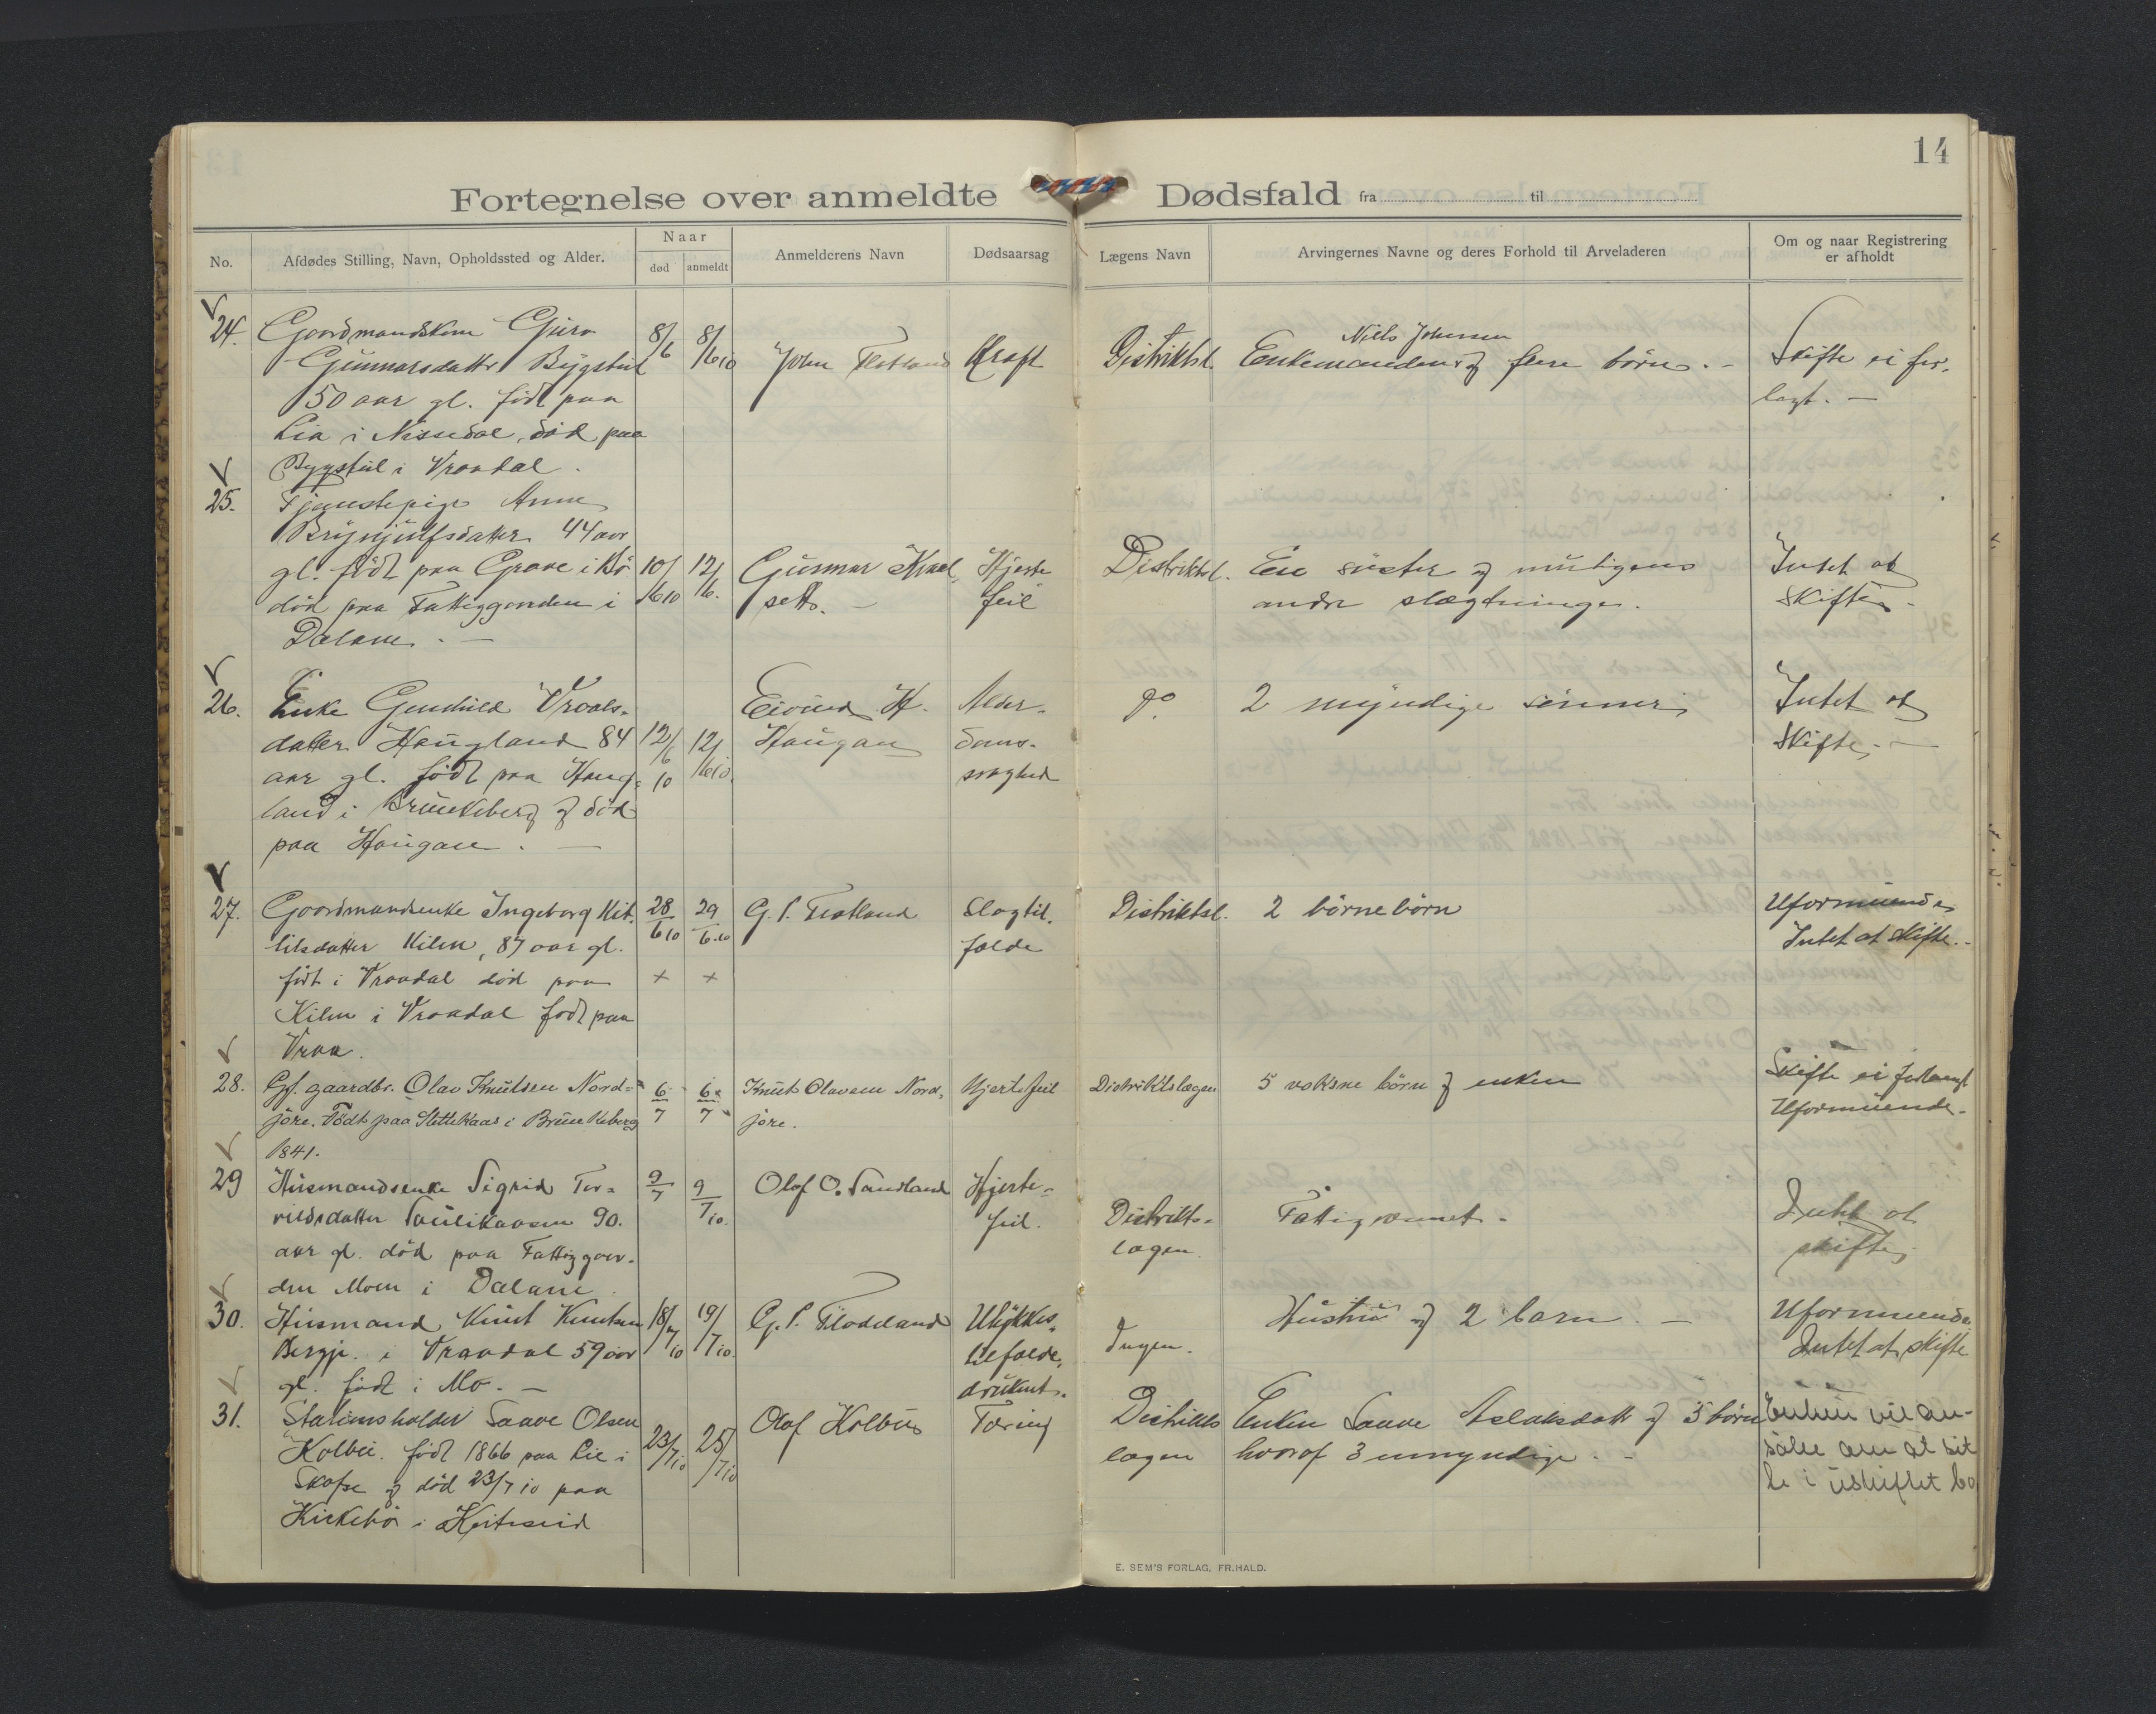 14
Fortegnelse over anmeldte Dødsfald fra til
No.
Afdødes Stilling, Navn, Opholdssted og Alder.
Naar
død
anmeldt
Anmelderens Navn
Dødsaarsag
Lægens Navn
Arvingernes Navne og deres Forhold til Arveladeren
Om og naar Registrering
er afholdt
24.
Gaardmandskone Guro
Gunnarsdatter Bygstul
50 aar gl. født paa
Lia i Nissedal, død paa
Bygstul i Vraadal.
8/6
8/6 10
John Flatland
Kræft
Distriktsl.
Niels Johnsen
Enkemanden og flere børn. -
Skifte ei for-
langt. -
25.
Tjenestepige Anne
Brynjulfsdatter 44 aar
gl. født paa Grave i Bø
død paa Fattiggaarden i
Dalane. -
10/6 10
12/6.
Gunnar
setb. -
Hjerte
feil
Distriktsl.
En søster og muligens
andre slægtninger.
Intet at
skifte.
26.
Enke Gunhild Vraals-
datter Haugland 84
aar gl. født paa Haug-
land i Brunkeberg og død
paa Haugan. -
12/6 10
12/6 10.
Eivind H.
Haugan
Alder-
doms-
svaghed
do.
2 myndige sønner
Intet at
skifte. -
27.
Gaardmandsenke Ingeborg Kit-
tilsdatter Kilen, 87 aar gl.
født i Vraadal død paa
Kilen i Vraadal født paa
Vraa.
28/6 10
+
29/6.10
+
G. S. Flatland
Slagtil-
fælde
Distriktsl.
2 børnebørn
Uformuende
Intet at skifte. -
28.
Gf. gaardbr. Olav Knutsen Nord-
jore. Født paa Slettekaas i Brunkeberg
1841.
6/7
6/7
Knut Olavsen Nord-
jore.
Hjertefeil
Distriktslægen
5 voksne børn og enken
Skifte ei forlangt
Uformuende.
29
Husmandsenke Sigrid Tor-
vildsdatter 90.
aar gl. død paa Fattiggaar-
den Moen i Dalane
9/7
9/7 10.
Olaf O. Sandland
Hjerte-
feil.
Distrikts-
lægen.
Fattigvæsnet.
Intet at
skifte.
30.
Husmand Knut Knutsen
Berge i Vraadal 59 aar
gl. født i Mo. -
18/7 10
19/7 10.
G. S. Flatland
Ulykkes-
tilfælde,
druknet.
Ingen.
Hustru og 2 barn. -
Uformuende.
Intet at skifte
31.
Stationsholder Saave Olsen
Kolbu. født 1866 paa Lie i
Skafse og død 23/7 10 paa
Kirkebø i Kviteseid
23/7 10
25/7 10
Olaf Kolbu
Tæring
Distrikts
lægen
Enken Saave Aslaksdatt og 5 børn
hvoraf 3 umyndige. -
Enken vil an-
søke om at sit
te i uskiftet bo
E. SEM'S FORLAG, FR.HALD.